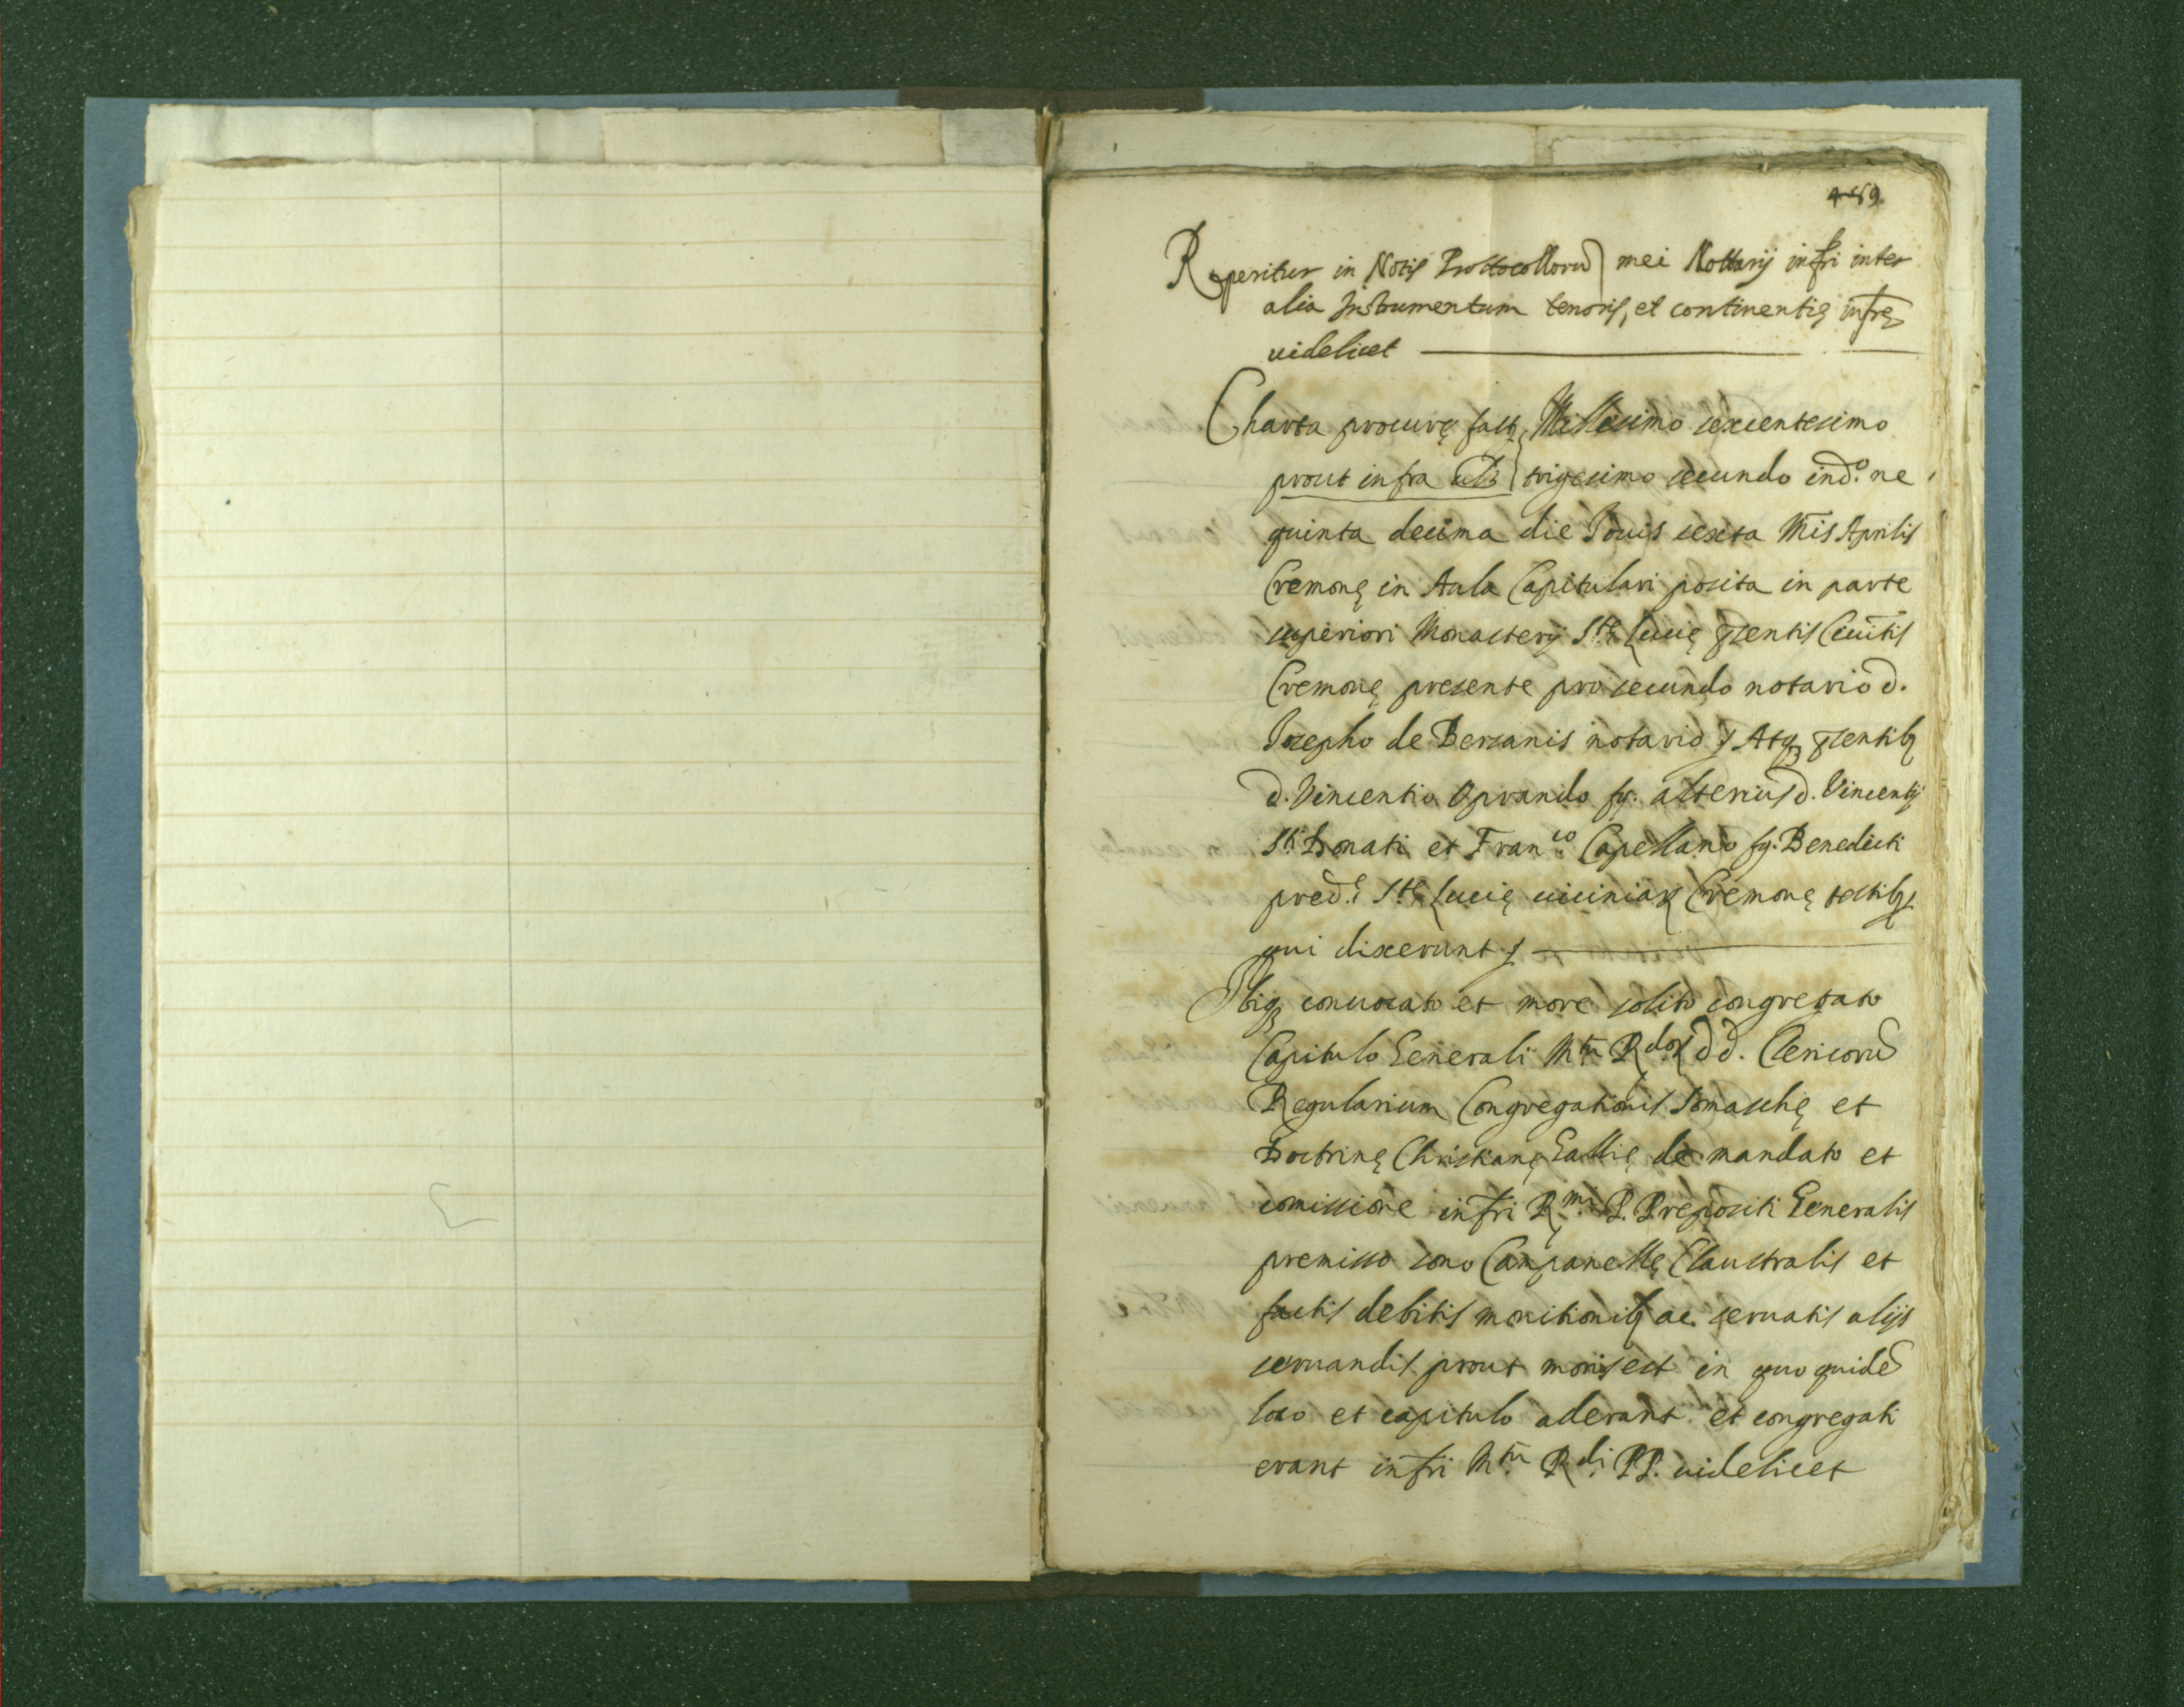 469
Reperitur in Notis Prottocollorũ mei Nottarij infr̃i inter
alia Instrumentum tenoris, et continentię infr̃ę
uidelicet
Charta procurę fact Millesimo sexcentesimo
prout infra trigesimo secundo ind.º ne
quinta decima die Iouis sexta m̃is Aprilis
Cremonę in Aula Capitulari posita in parte
superiori Monasterij Stę Lucię p̃sentis Ciuit̃is
Cremonę presente pro secundo notario d.
Iosepho de Bersanis notario Atq; p̃sentib;
d. Vincentio Oprando fq. alterius d. Vincentij
Sti Donati et Fran.co Capellano fq. Benedicti
pred.ę Stę Lucię uiciniaꝝ Cremonę testib;
qui dixerunt
Ibiq; conuocato et more solito congregato
Capitulo Generali M.tũ R.doꝝ dd. Clericorũ
Regularium Congregationis Somaschę et
Doctrinę Christianę Gallię de mandato et
comissione infr̃i R.mi P. Prepositi Generalis
premisso sono Campanellę Claustralis et
factis debitis monitionib; ac seruatis alijs
seruandis prout moris est in quo quidẽ
loco et capitulo aderant et congregati
erant infr̃i M.tũ R.di PP. uidelicet